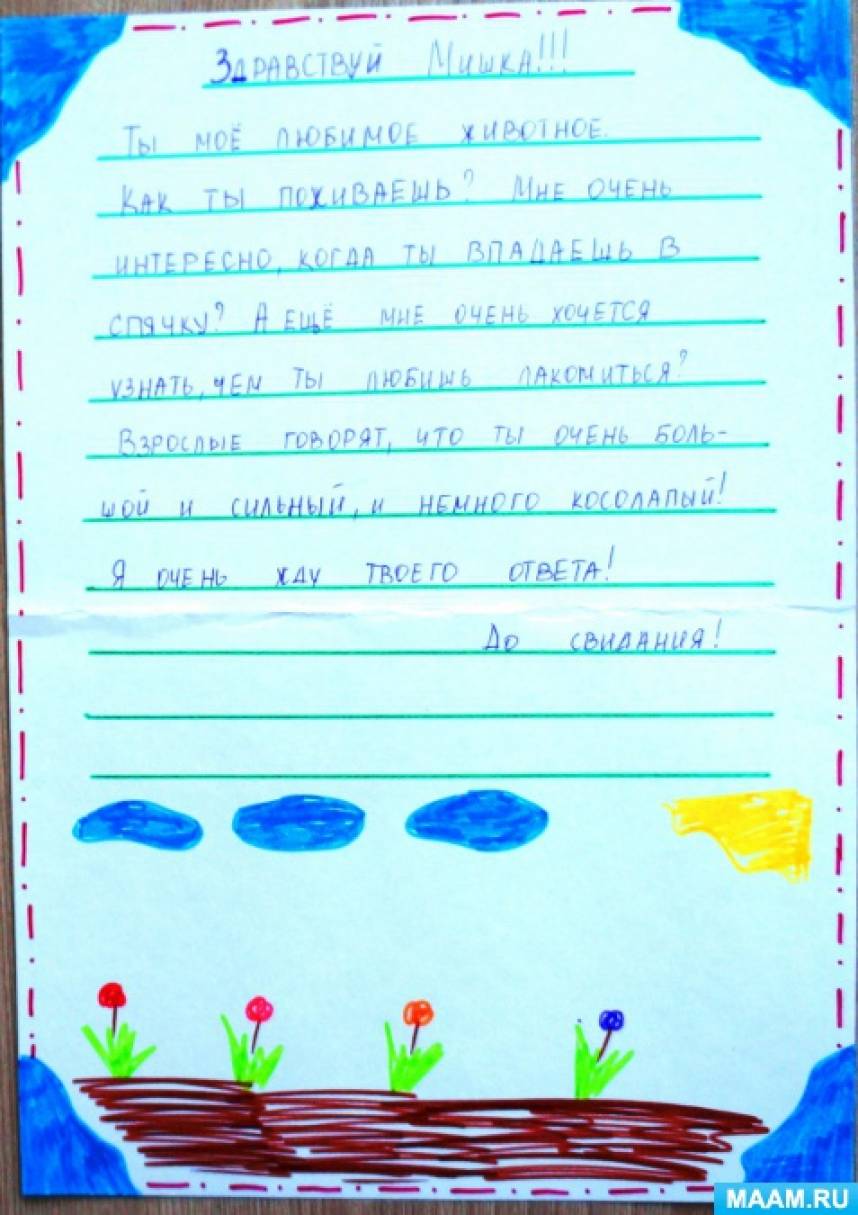 Здравствуй Мишка!!!
Ты моё любимое животное.
Как ты поживаешь? Мне очень
интересно, когда ты впадаешь в
спячку? А ещё мне очень хочется
узнать, чем ты любишь лакомиться?
Взрослые говорят, что ты очень боль-
шой и сильный, и немного косолапый!
Я очень жду твоего ответа!
До свидания!
MAAM.RU